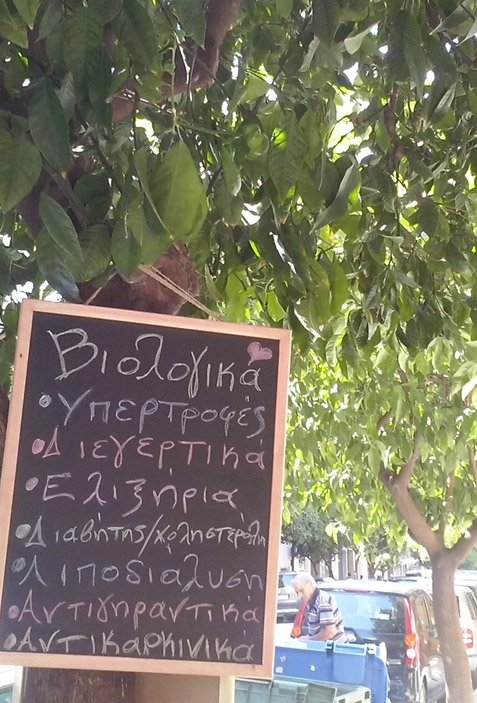 Βιολογικά
• Υπερτροφές
• Διεγερτικά
• Ελιξήρια
• Διαβήτης/χοληστερόλη
• Λιποδιάλυση
• Αντιγηραντικά
• Αντικαρκινικά